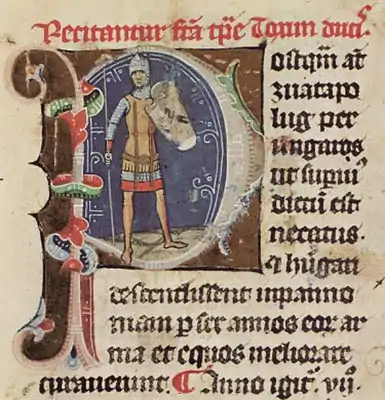 Recitantur fca tpe Toxun ducis.
ostqm at
zuatapo
lug per
ungaros
ut supius
dictu est
necatus.
& hungari
descendissent in panno
niam p sex annos eor ar
ma et equos meliorare
curauerunt. ¶ Anno igit. vii.